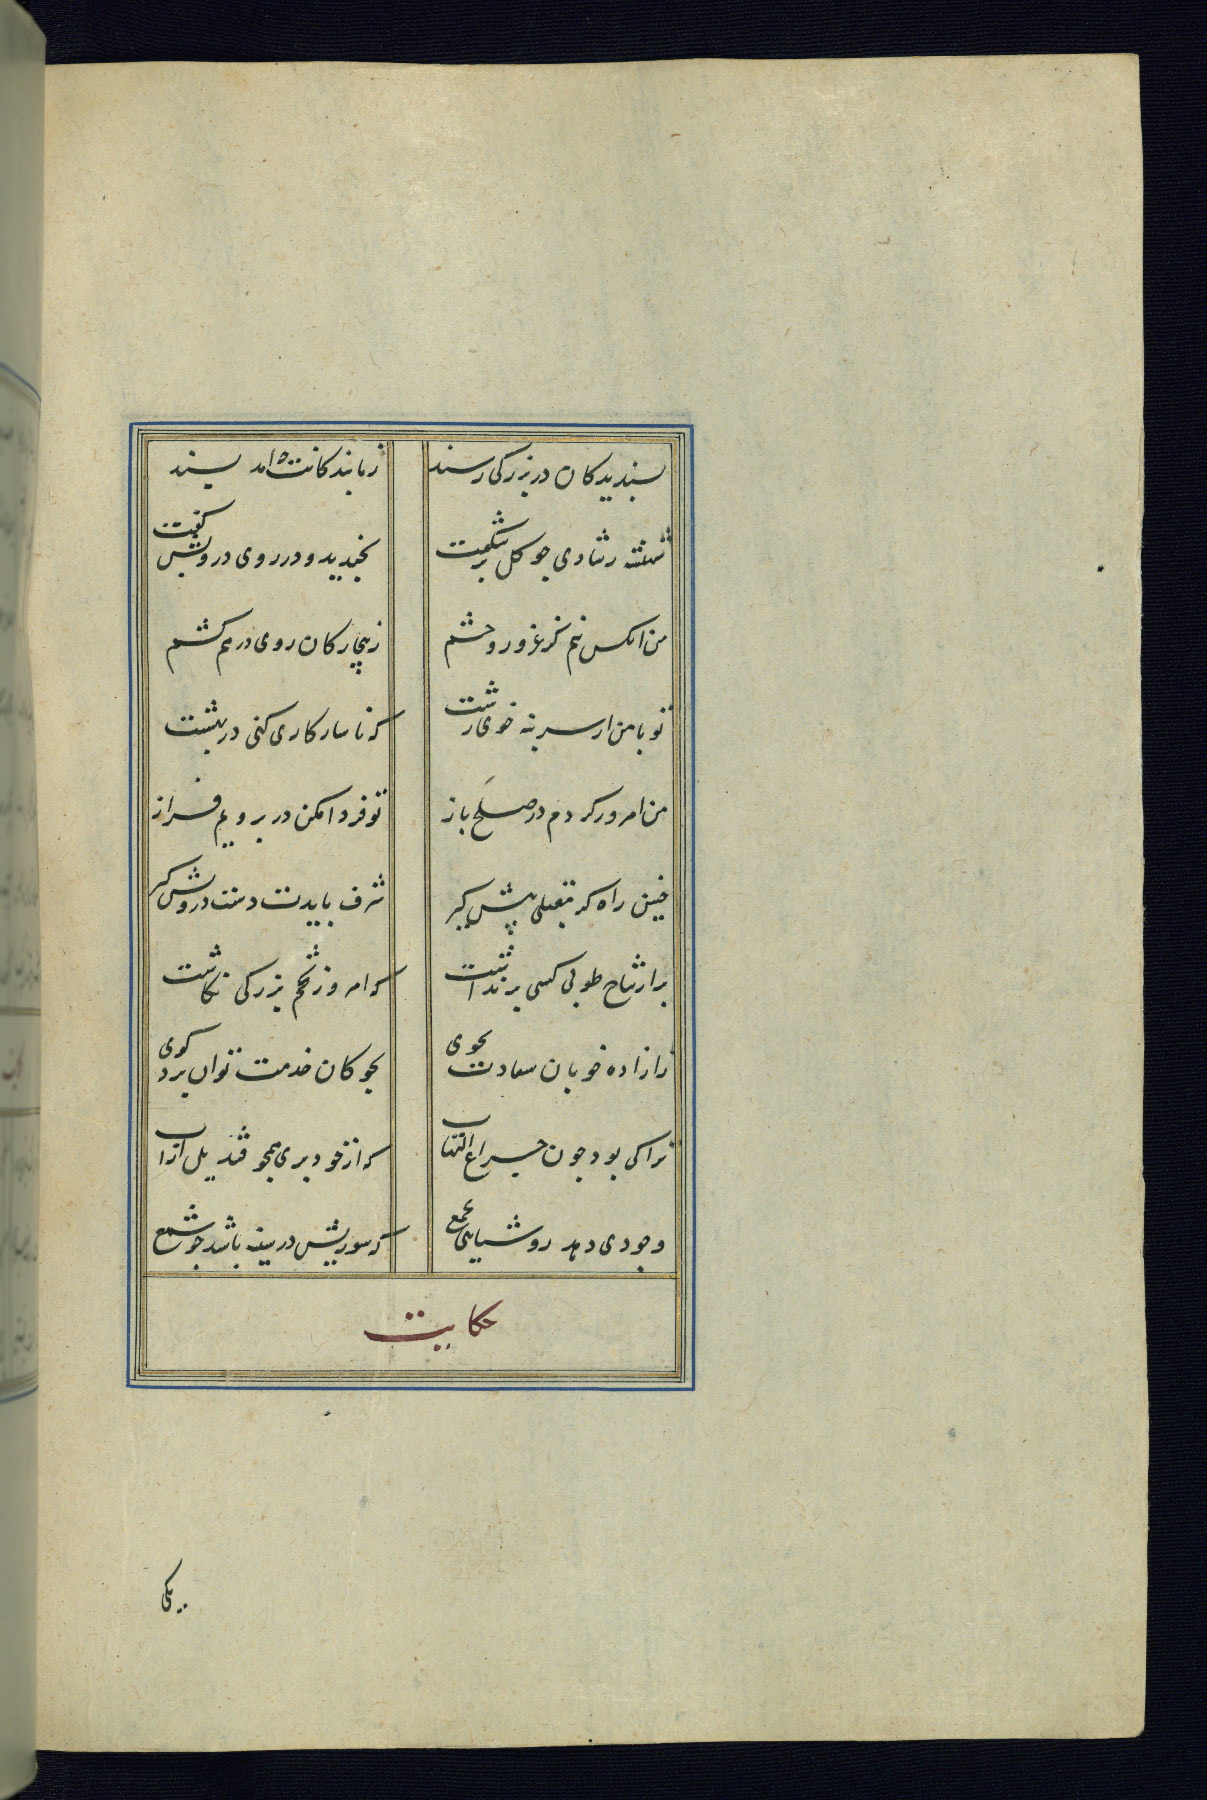 پسندیدکان در بزرکی رسند ز ما بندکانت چه آمد پسند
شهنشه ز شادی چو کل برشکفت بخندید و در روی درویش کفت
من آنکس نیم کز غرور و حشم ز بیچارکان روی درهم کشم
تو با من از سر بنه خوی زشت که ناسازکاری کنی در بهشت
من امروز کردم در صلح باز تو فردا مکن در برویم فراز
چنین راه کر مقبلی پیش کیر شرف بایدت دست درویش کیر
بر از شاخ طوبی کسی برنداشت که امروز تخم بزرکی نکاشت
ارادت نداری سعادت مجوی بچوکان خدمت توان برد کوی
ترا کی بود چون چراغ التهاب که از خود پری همچو قندیل از آب
وجودی دهد روشنایی بجمع که سوزیش در سینه باشد چو شمع
حکایت
یکی